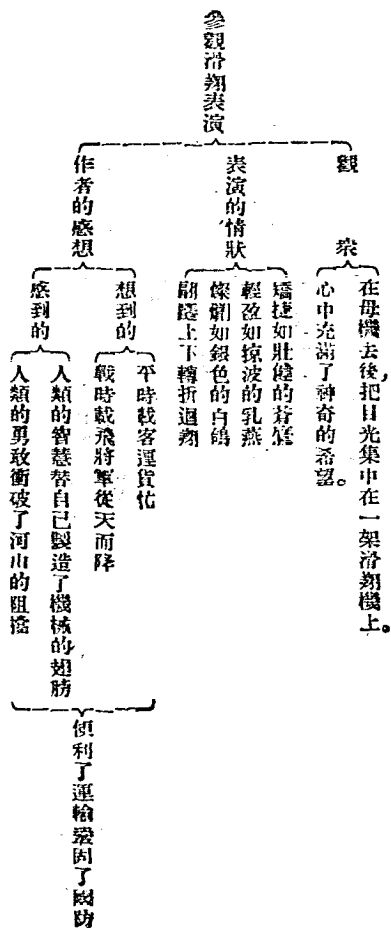 參觀滑翔表演
觀眾
在母機去後,把目光集中在一架滑翔機上。
心中充滿了神奇的希望。
表演的情狀
矯捷如壯健的蒼鷹
輕盈如掠波的乳燕
燦爛如銀色的白鴿
翩躚上下轉折迴翔
作者的感想
想到的
平時載客運貨忙
戰時載飛將軍從天而降
感到的
人類的智慧替自己製造了機械的翅膀
人類的勇敢衝破了河山的阻擋
便利了運輸鞏固了國防